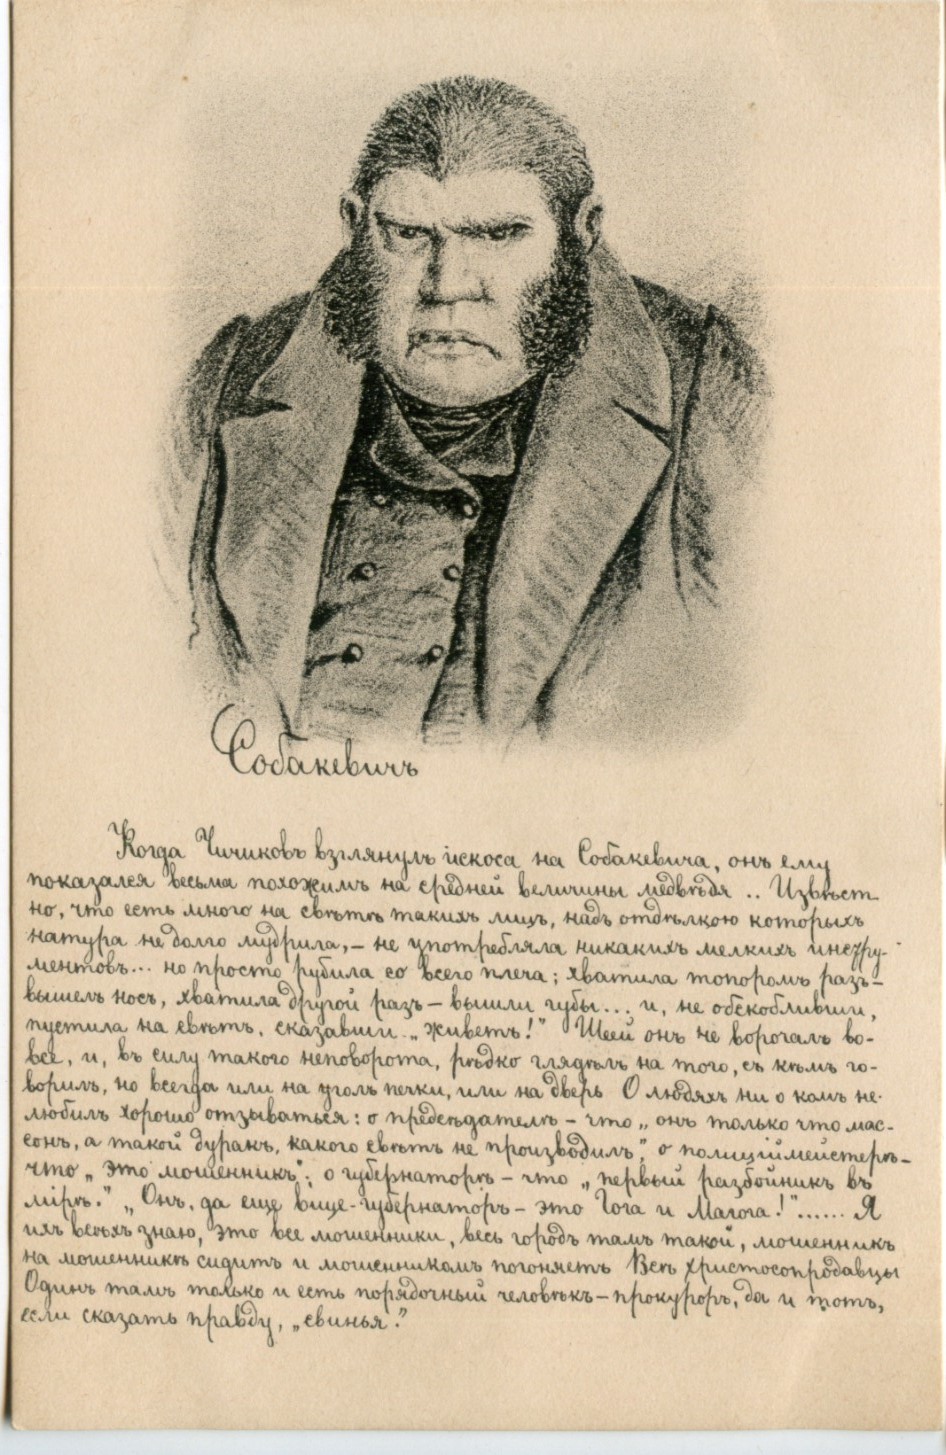 Собакевичъ
Когда Чичиковъ взглянулъ искоса на Собакевича, онъ ему
показался весьма похожимъ на средней величины медвѣдя .. Извѣст
но, что есть много на свѣтѣ такихъ лицъ, надъ отдѣлкою которыхъ
натура не долго мудрила, – не употребляла никакихъ мелкихъ инстру-
ментовъ... но просто рубила со всего плеча; хватила топоромъ разъ –
вышелъ носъ, хватила другой разъ – вышли губы... и, не обскобливши,
пустила на свѣтъ, сказавши „живетъ!" Шеей онъ не ворочалъ во-
все, и, въ силу такого неповорота, рѣдко глядѣлъ на того, съ кѣмъ го-
ворилъ, но всегда или на уголъ печки, или на дверь О людяхъ ни о комъ не
любилъ хорошо отзываться: о предсѣдателѣ – что „онъ только что мас-
сонъ, а такой дуракъ, какого свѣтъ не производилъ", о полицiймейстерѣ –
что „это мошенникъ"; о губернаторѣ – что „первый разбойникъ въ
мiрѣ." „Онъ, да еще вице-губернаторъ – это Гога и Магога!"...... Я
ихъ всѣхъ знаю, это все мошенники, весь городъ тамъ такой, мошенникъ
на мошенникѣ сидитъ и мошенникомъ погоняетъ Всѣ христосопродавцы
Одинъ тамъ только и есть порядочный человѣкъ – прокуроръ, да и тотъ,
если сказать правду, „свинья."